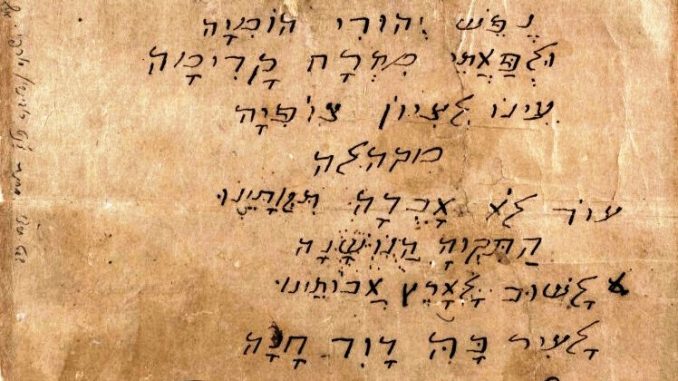 נֶפֶשׁ יְהוּדִי הוֹמִיָה
וּלְפַאֲתֵי מִזְרָח קָדִימָה
עֵינוֹ לְצִיוֹן צוֹפִיָה
מקהלה
עוֹד לֹא אָבְדָה תִקְוָתֵינוּ
הַתִּקְוָה הַנוֹשָׁנָה
לָשׁוּב לְאֶרֶץ אֲבוֹתֵינוּ
לָעִיר בָּהּ דָוִד חָנָה